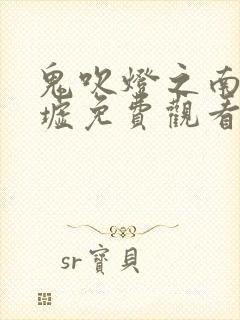 鬼吹燈之南
墟免費觀看
sr寶貝